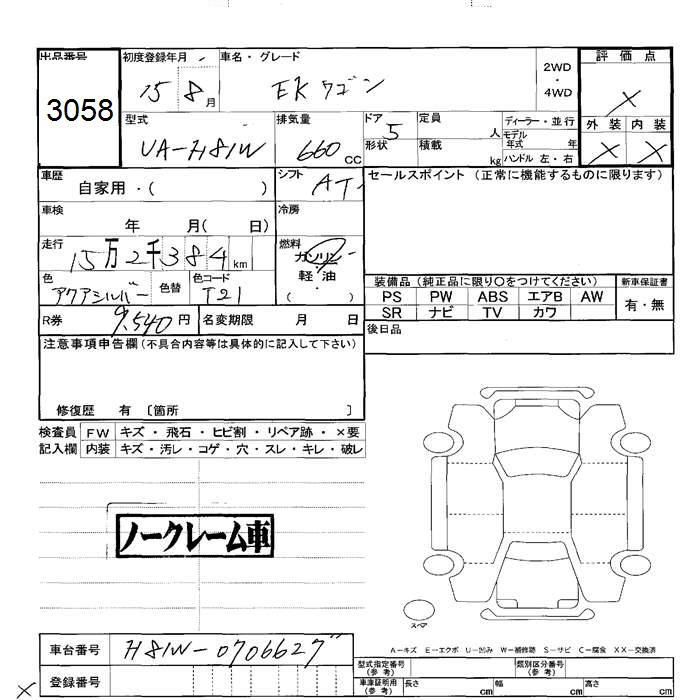 出品番号 初度登録年月 車名・グレード 2WD ・ 4WD 評価点
3058 15 8月 EKワゴン X
型式 排気量 ドア 定員 ディーラー・並行 外装 内装
UA-H81W 660 CC 5 人 モデル年式 年 X X
形状 積載 kg ハンドル 左・右
車歴 シフト セールスポイント(正常に機能するものに限ります)
自家用・( ) AT
車検 冷房
年 月( 日)
走行 燃料
15万2千384 km ガソリン
軽・油
色 色替 色コード ( )
アクアシルバー T21
装備品(純正品に限り○をつけてください) 新車保証書
PS PW ABS エアB AW 有・無
SR ナビ TV カワ
R券 9,540円 名変期限 月 日 後日品
注意事項申告欄(不具合内容等は具体的に記入して下さい)
修復歴 有 〔箇所 〕
検査員 FW キズ・飛石・ヒビ割・リペア跡・×要
記入欄 内装 キズ・汚レ・コゲ・穴・スレ・キレ・破レ
ノークレーム車
スペア
A-キズ E-エクボ U-凹み W-補修跡 S-サビ C-腐食 XX-交換済
車台番号 H81W-0706627
型式指定番号(参考) 類別区分番号(参考)
X 登録番号 車庫証明用(参考) 長さ cm 幅 cm 高さ cm